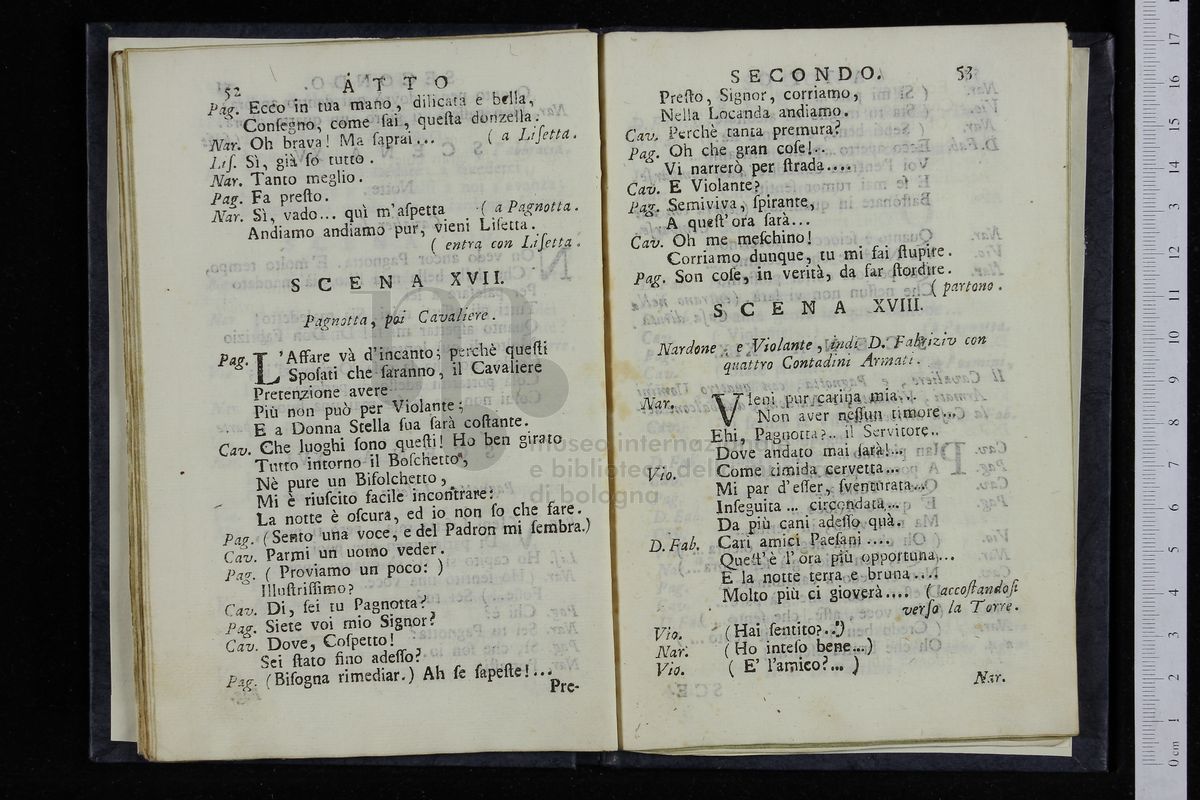 52 ATTO
Pag. Ecco in tua mano, dilicata e bella,
Conſegno, come ſai, queſta donzella.
Nar. Oh brava! Ma ſaprai... ( a Liſetta.
Liſ. Sì, già ſo tutto.
Nar. Tanto meglio.
Pag. Fa preſto.
Nar. Sì, vado... quì m'aſpetta ( a Pagnotta.
Andiamo andiamo pur, vieni Liſetta.
( entra con Liſetta.
SCENA XVII.
Pagnotta, poi Cavaliere.
Pag. L'Affare và d'incanto; perchè queſti
Spoſati che ſaranno, il Cavaliere
Pretenzione avere
Più non può per Violante;
E a Donna Stella ſua ſarà coſtante.
Cav. Che luoghi ſono queſti! Ho ben girato
Tutto intorno il Boſchetto,
Nè pure un Bifolchetto,
Mi è riuſcito facile incontrare:
La notte è oſcura, ed io non ſo che fare.
Pag. (Sento una voce, e del Padron mi ſembra.)
Cav. Parmi un uomo veder.
Pag. ( Proviamo un poco: )
Illuſtriſſimo?
Cav. Di, ſei tu Pagnotta?
Pag. Siete voi mio Signor?
Cav. Dove, Coſpetto!
Sei ſtato fino adeſſo?
Pag. (Biſogna rimediar.) Ah ſe ſapeſte!...
Pre-
SECONDO. 53
Preſto, Signor, corriamo,
Nella Locanda andiamo.
Cav. Perchè tanta premura?
Pag. Oh che gran coſe!..
Vi narrerò per ſtrada....
Cav. E Violante?
Pag. Semiviva, ſpirante,
A queſt' ora ſarà...
Cav. Oh me meſchino!
Corriamo dunque, tu mi fai ſtupire.
Pag. Son coſe, in verità, da far ſtordire.
( partono.
SCENA XVIII.
Nardone, e Violante, indi D. Fabrizio con
quattro Contadini Armati.
Nar. Vieni pur carina mia...
Non aver neſſun timore...
Ehi, Pagnotta?.. il Servitore..
Dove andato mai ſarà!...
Vio. Come timida cervetta...
Mi par d'eſſer, ſventurata...
Inſeguita... circondata...
Da più cani adeſſo quà.
D. Fab. Cari amici Paeſani....
Queſt' è l'ora più opportuna...
E la notte terra e bruna....
Molto più ci gioverà.... (accoſtandoſi
verſo la Torre.
Vio. (Hai ſentito?..)
Nar. (Ho inteſo bene...)
Vio. ( E' l'amico?... )
Nar.
museo internazionale
e biblioteca della
di bologna
0 cm 1 2 3 4 5 6 7 8 9 10 11 12 13 14 15 16 17